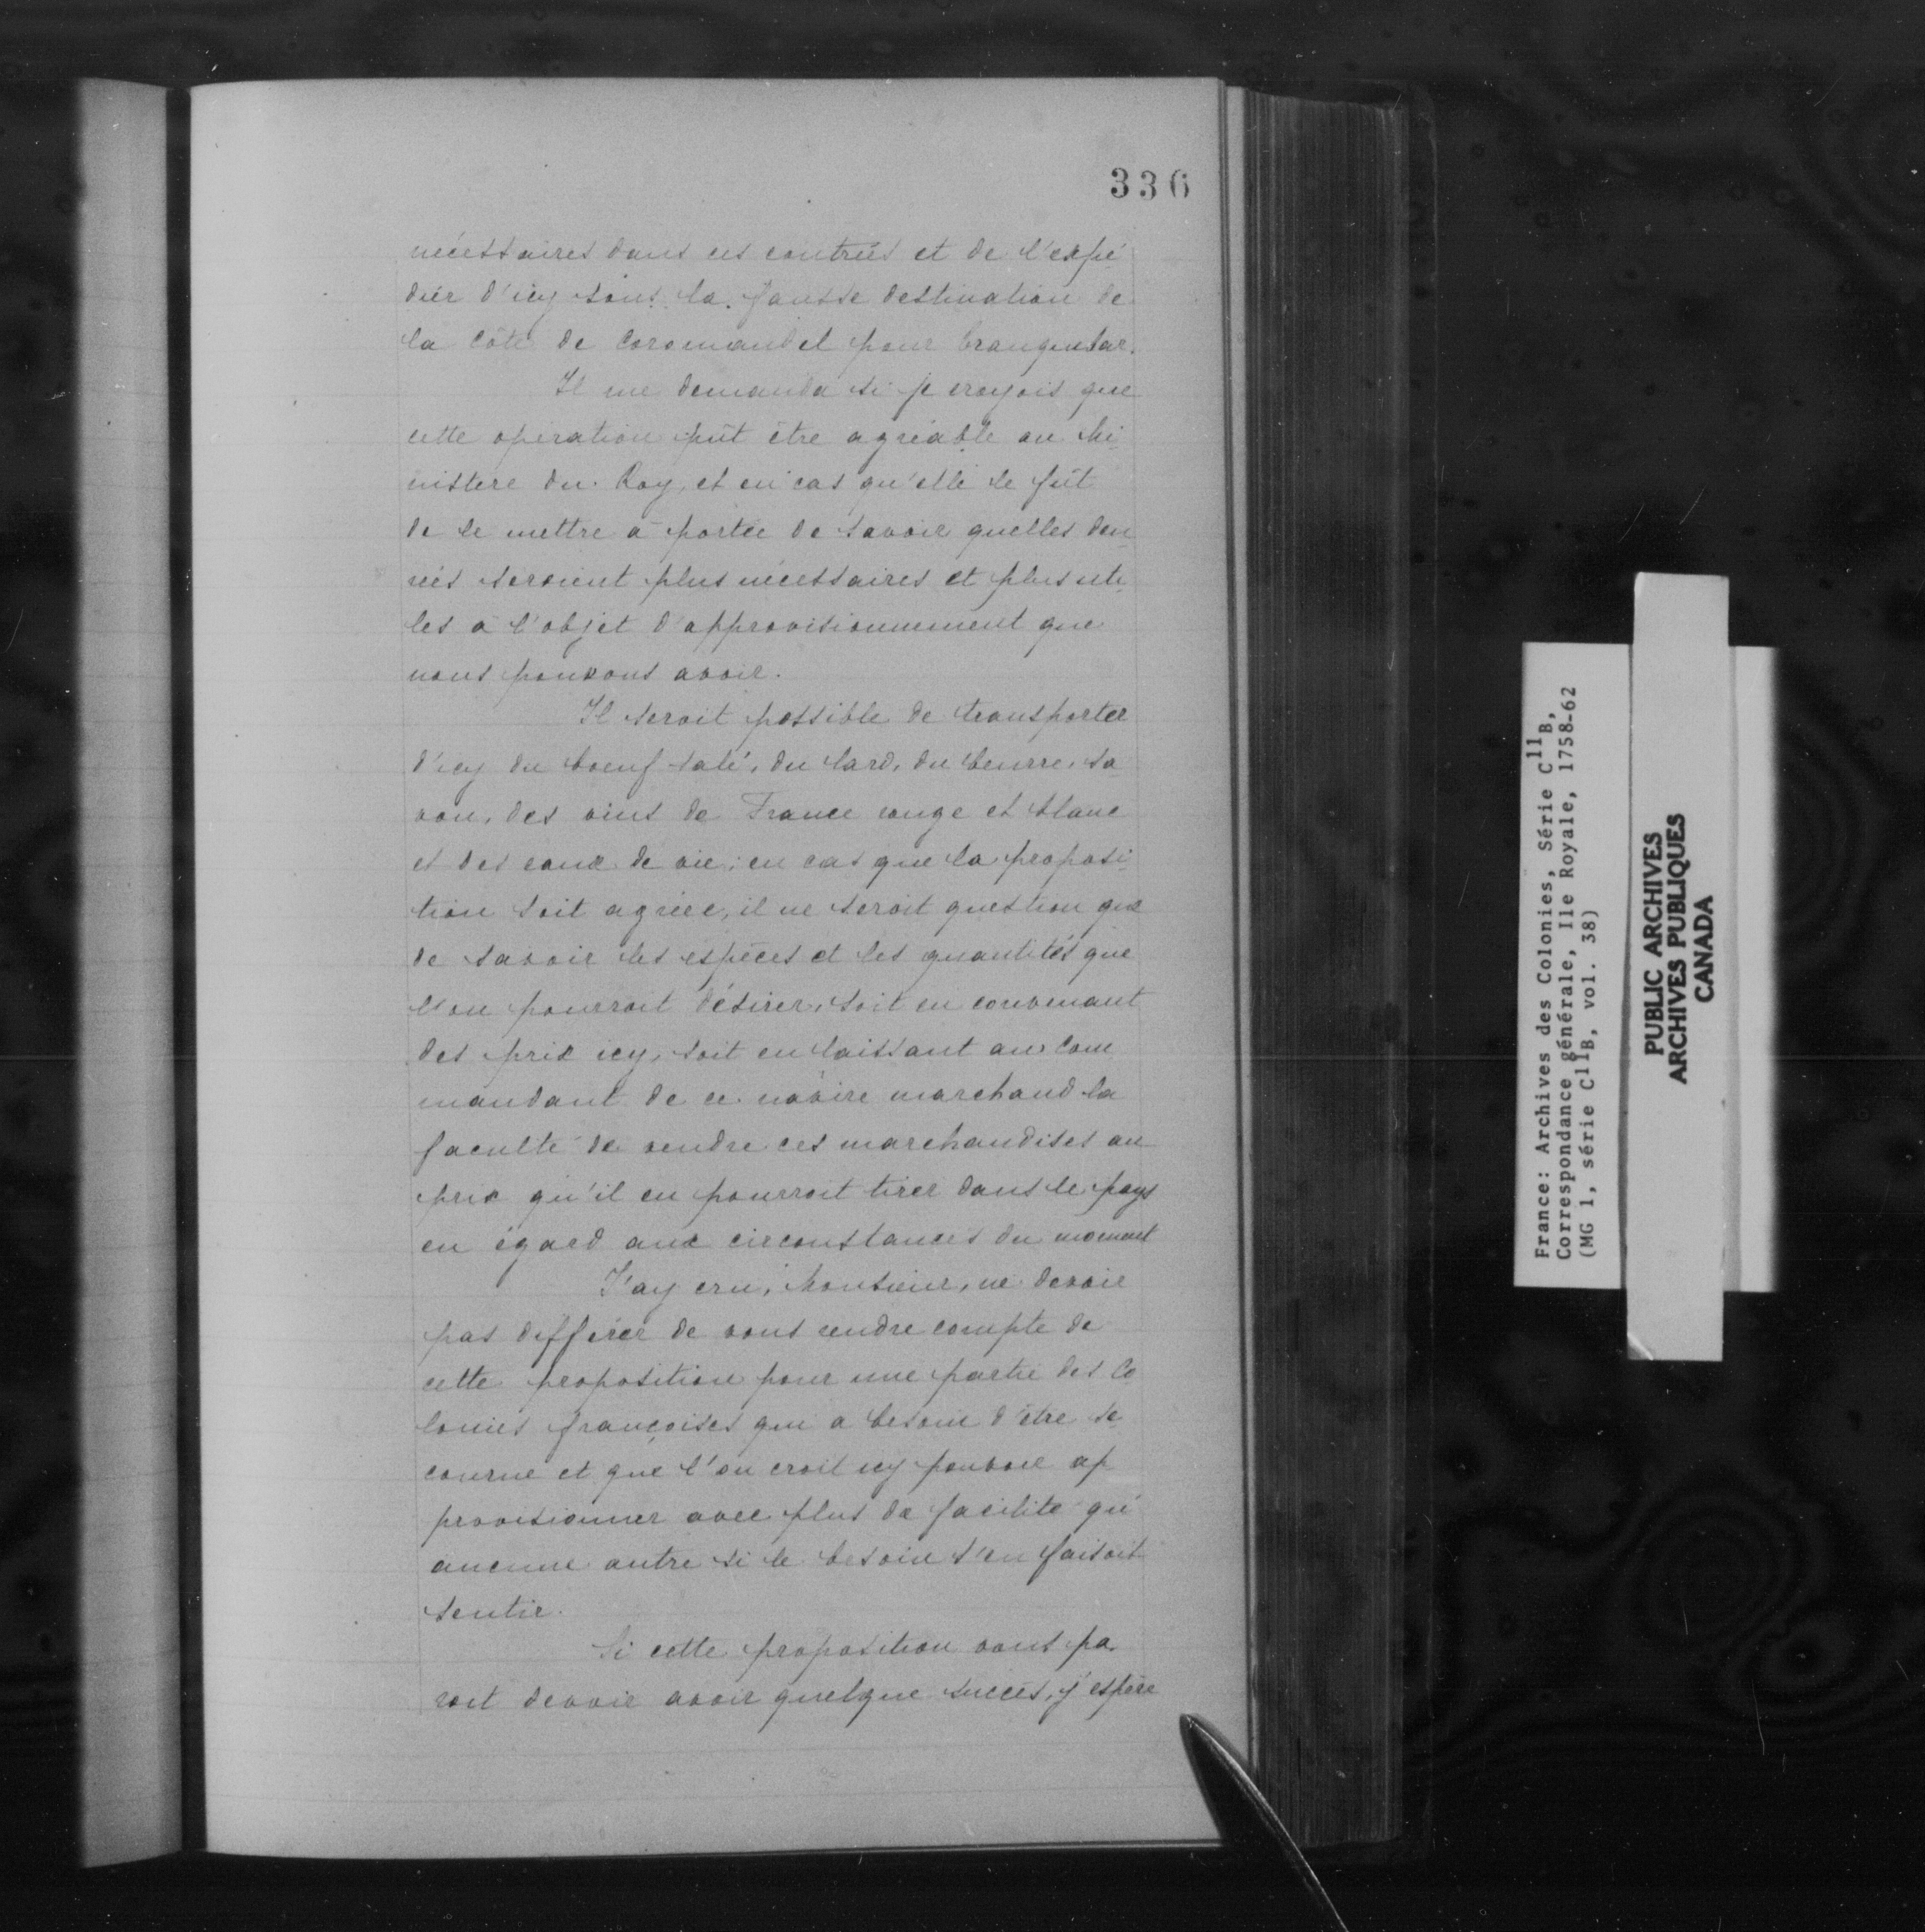 336
nécessaires dans ces contrées et de l'expé
dier d'icy sous la fausse destination de
la Côte de Coromandel pour Tranquebar.
Il me demanda si je croyois que
cette opération pût être agréable au Mi
nistere du Roy, et en cas qu'elle le fût
de le mettre à portée de savoir quelles den
rées seroient plus nécessaires et plus uti
les à l'objet d'approvisionnement que
nous pouvons avoir.
Il seroit possible de transporter
d'icy du boeuf salé, du lard, du beurre, sa
von, des vins de France rouge et blanc
et des eaux de vie; en cas que la proposi
tion soit agréée, il ne seroit question que
de savoir les espèces et les quantités que
l'on pourroit désirer, soit en convenant
des prix icy, soit en laissant au Com
mandant de ce navire marchand la
faculté de vendre ces marchandises au
prix qu'il en pourroit tirer dans le pays
eu égard aux circonstances du moment
J'ay cru, Monsieur, ne devoir
pas différer de vous rendre compte de
cette proposition pour une partie des Co
lonies françoises qui a besoin d'être se
courue et que l'on croit icy pouvoir ap
provisionner avec plus de facilité qu'
aucune autre si le besoin s'en faisoit
sentir.
Si cette proposition vous pa
roit devoir avoir quelque succès, j'espère
France: Archives des Colonies, Série C11B,
Correspondance générale, Ile Royale, 1758-62
(MG 1, série C11B, vol. 38)
PUBLIC ARCHIVES
ARCHIVES PUBLIQUES
CANADA